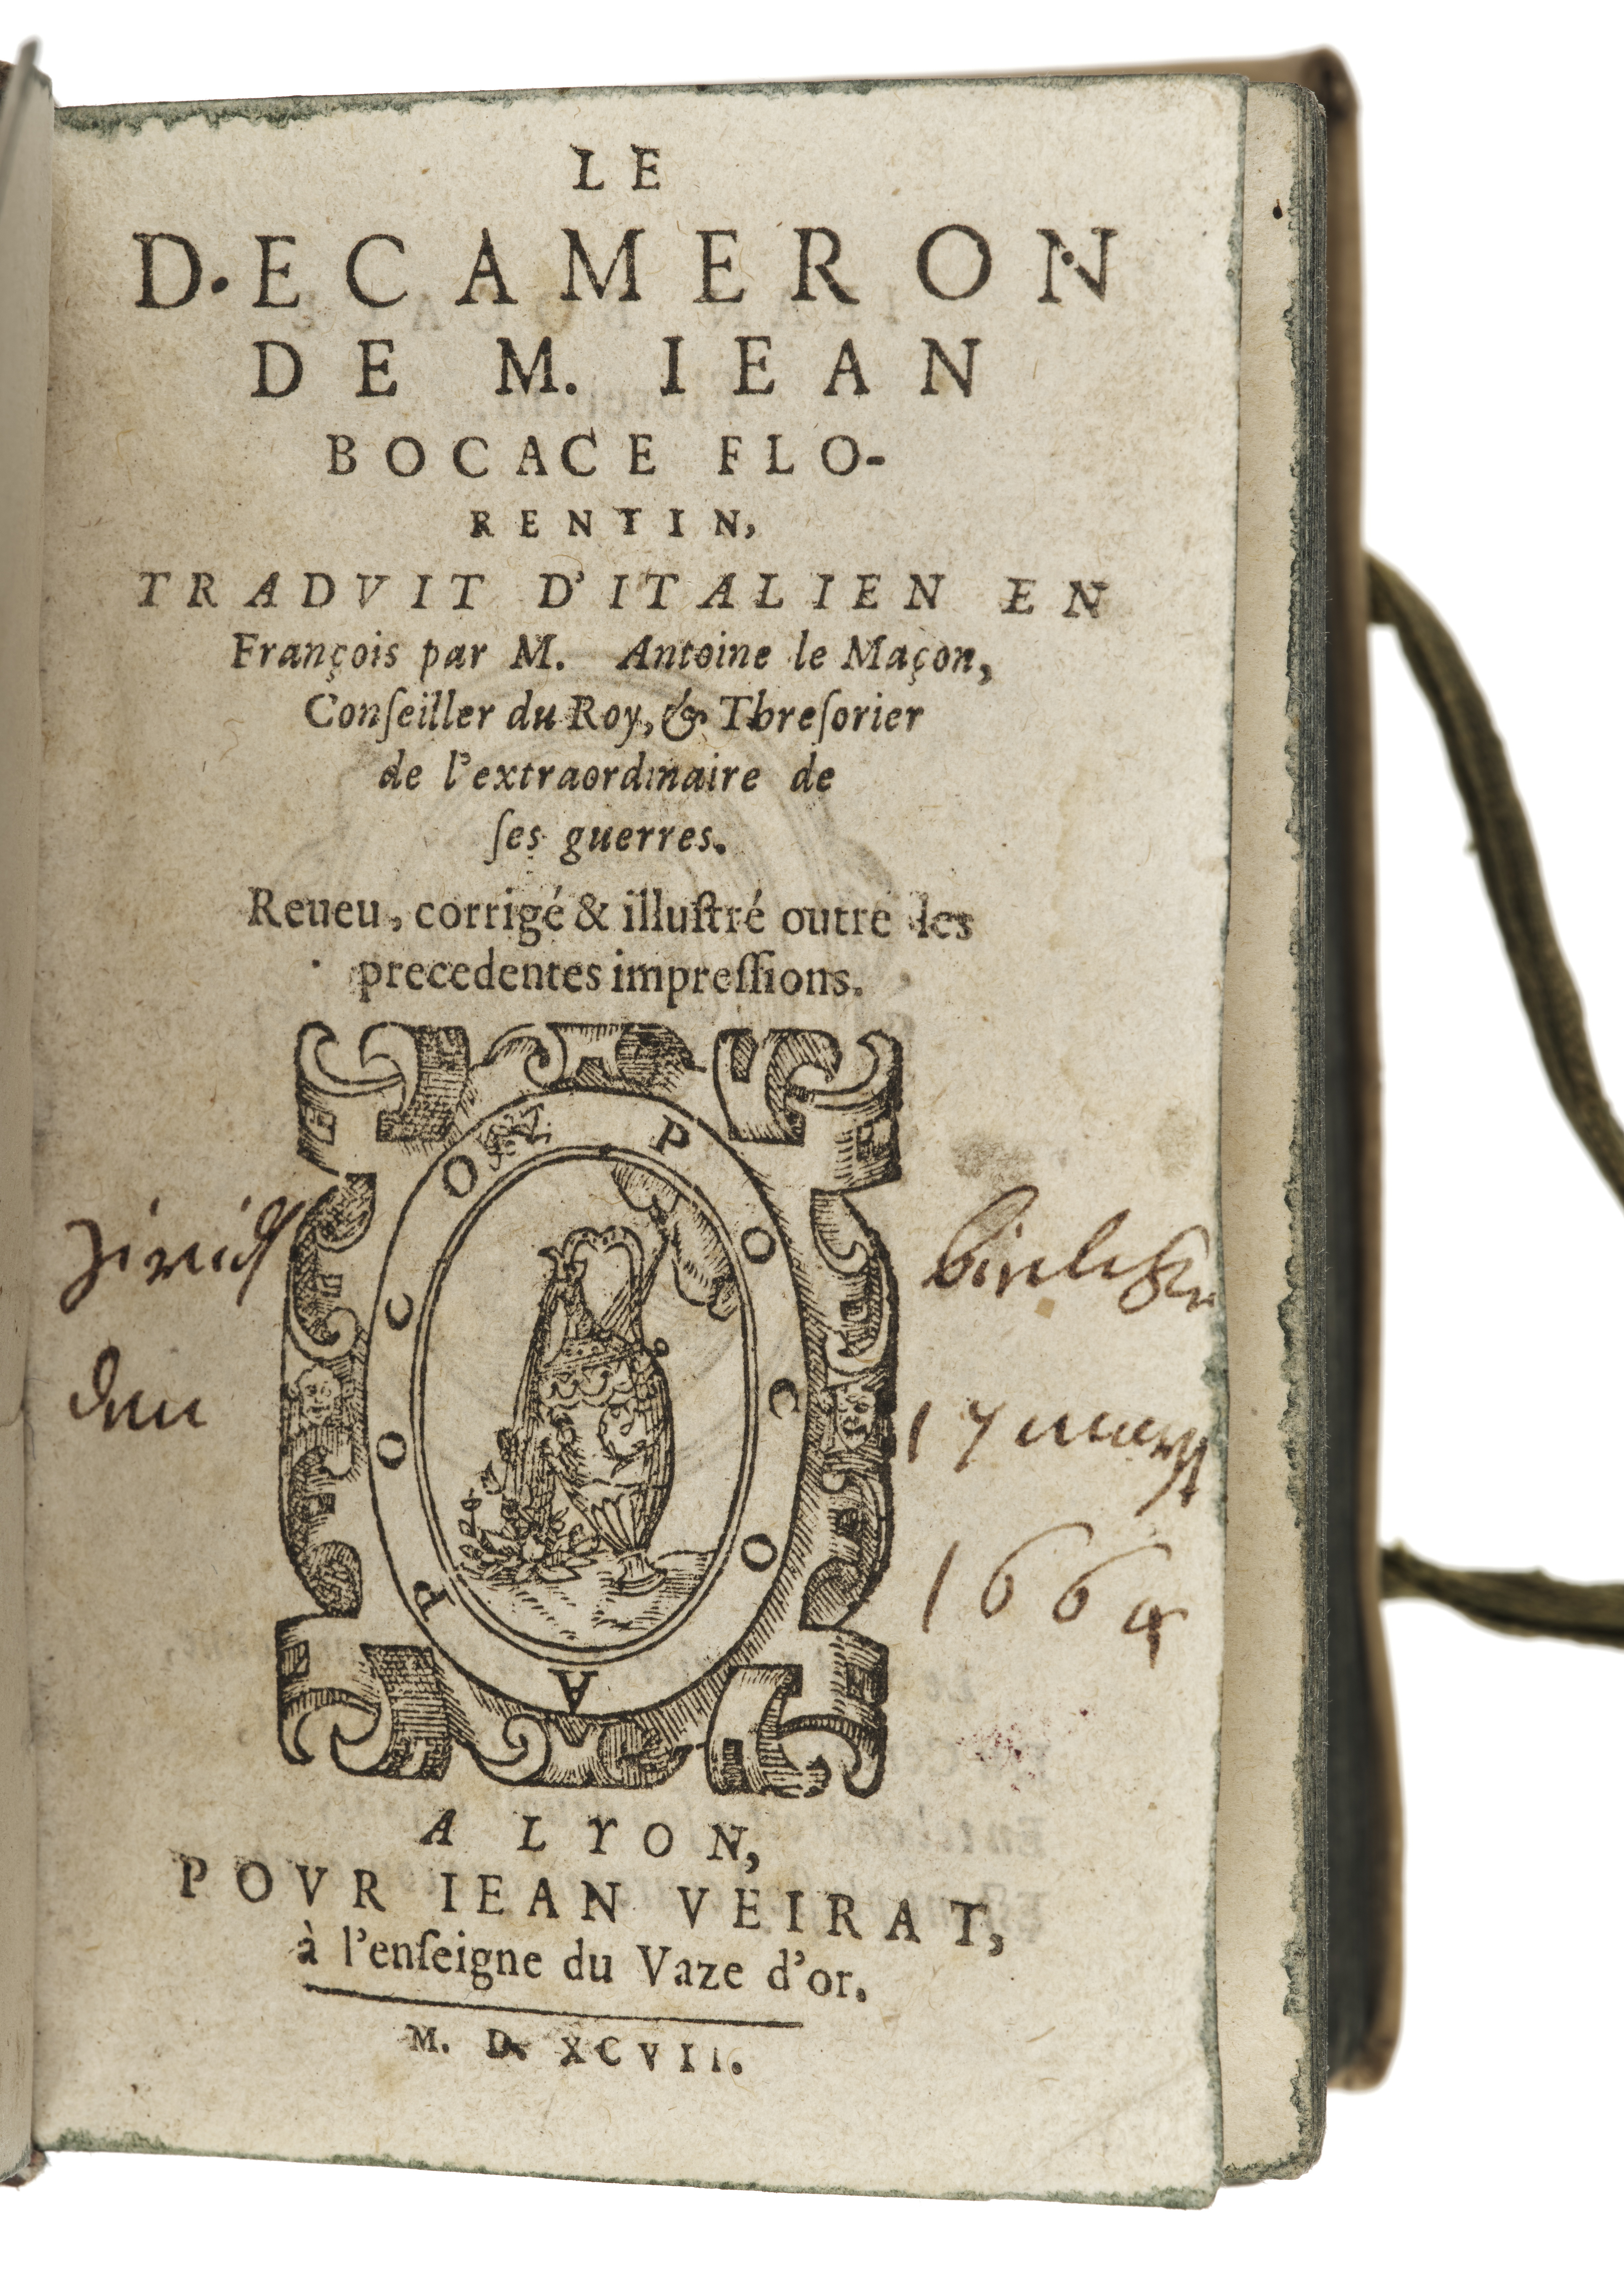 LE
D.ECAMERON
DE M. IEAN
BOCACE FLO-
RENTIN,
TRADVIT D'ITALIEN EN
François par M. Antoine le Maçon,
Conſeiller du Roy, & Threſorier
de l'extraordinaire de
ſes guerres.
Reueu, corrigé & illuſtré outre les
precedentes impreſſions.
POCO A POCO
den
17
1664
A LYON,
POVR IEAN VEIRAT,
à l'enſeigne du Vaze d'or.
M. D. XCVII.